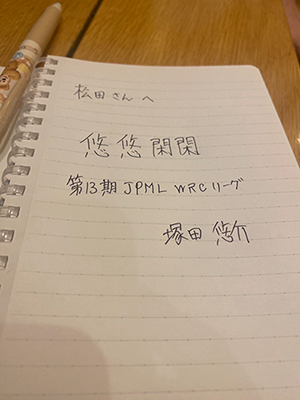 松田さんへ
悠悠閑閑
第13期 JPML WRCリーグ
塚田 悠介